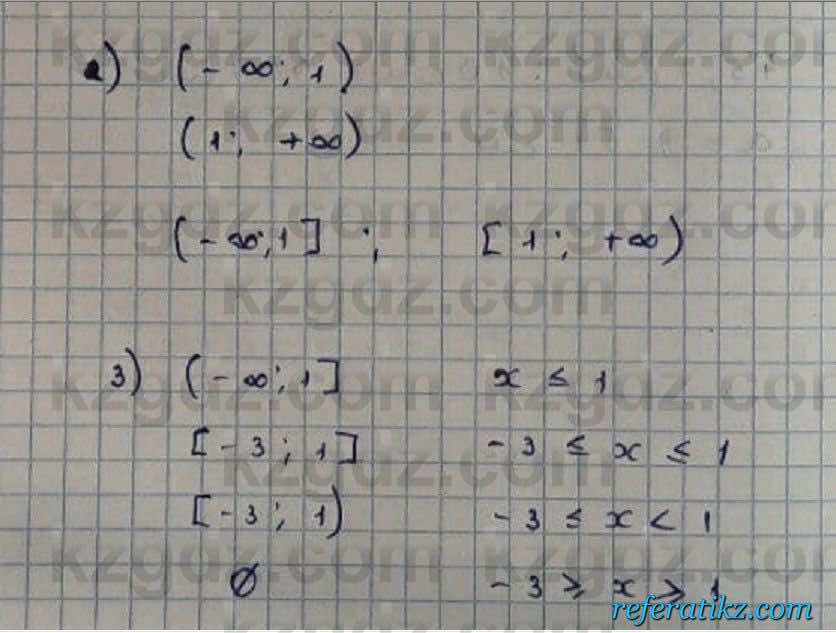 2) (- ∞; 1)
(1; +∞)
(- ∞; 1] ; [1; +∞)
3) (- ∞; 1] x ≤ 1
[-3; 1] -3 ≤ x ≤ 1
[-3; 1) -3 ≤ x < 1
∅ -3 ⩾ x > 1
kzgdz.com
referatikz.com